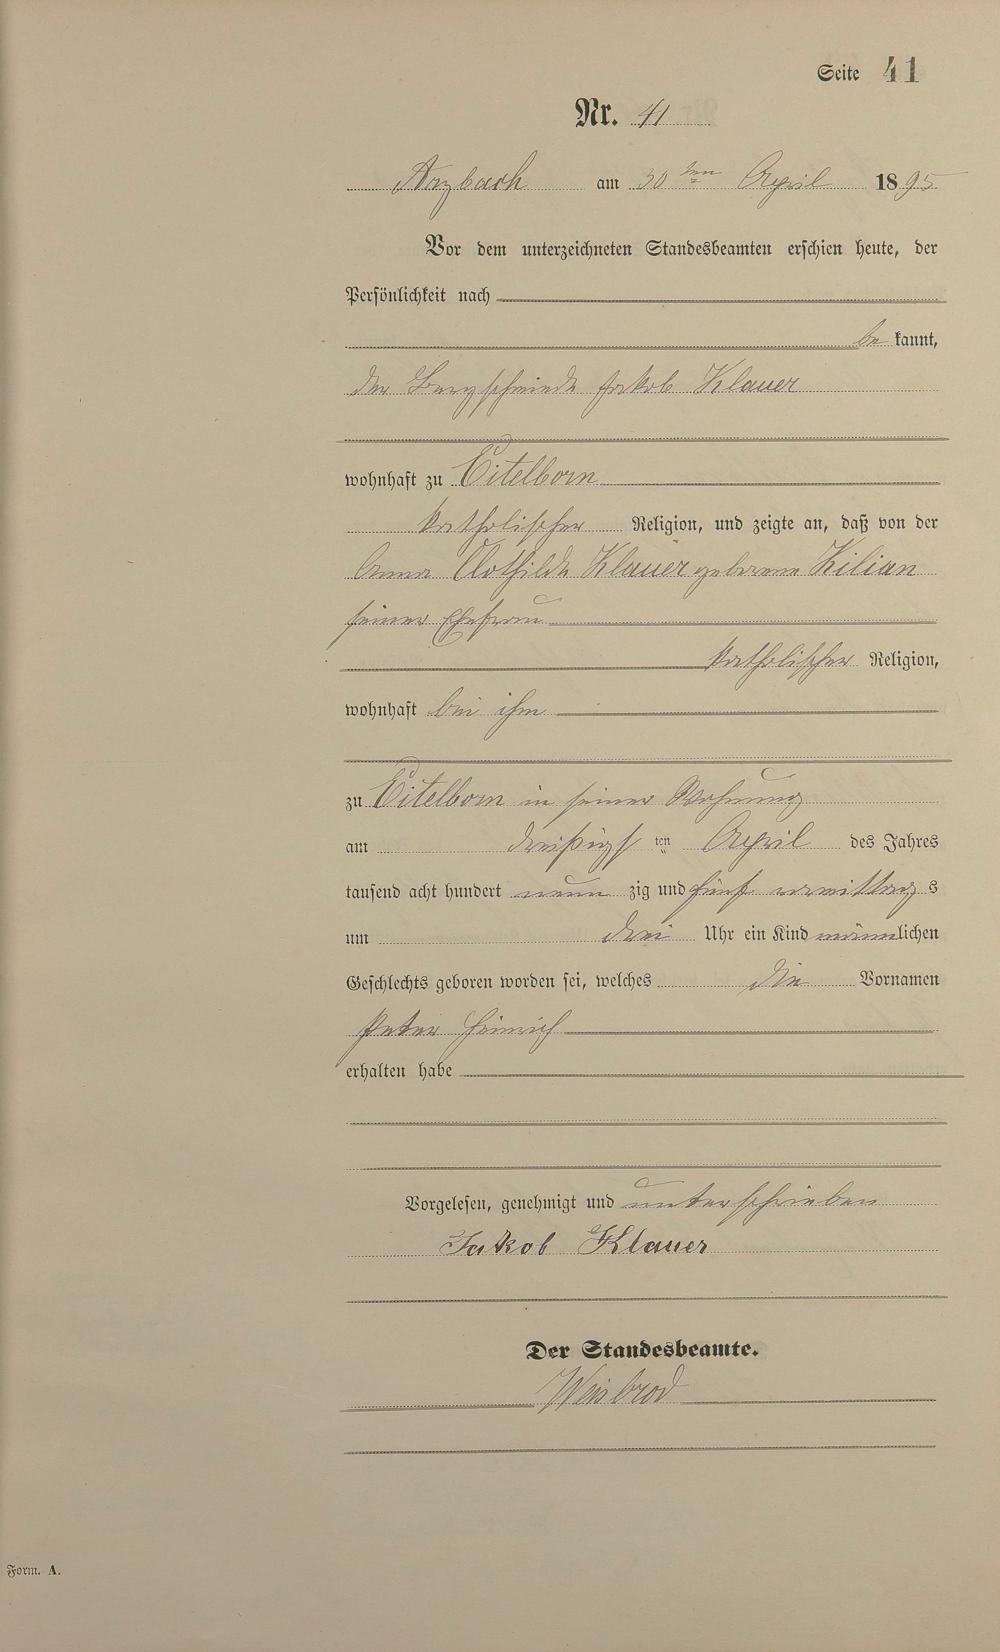 Seite 41
Nr. 41
Arzbach am 30 ten April 1895
Vor dem unterzeichneten Standesbeamten erschien heute, der
Persönlichkeit nach
be kannt,
der Bergschmiede Jakob Klauer
wohnhaft zu Eitelborn
katholischer Religion, und zeigte an, daß von der
Anna Clothilde Klauer geborene Kilian
seiner Ehefrau
katholischer Religion,
wohnhaft bei ihm
zu Eitelborn in seiner Wohnung
am dreißigs ten April des Jahres
tausend acht hundert neun zig und fünf vormittag s
um drei Uhr ein Kind männlichen
Geschlechts geboren worden sei, welches die Vornamen
Peter Heinrich
erhalten habe
Vorgelesen, genehmigt und unterschrieben
Jakob Klauer
Der Standesbeamte.
Weisbrod
Form. A.